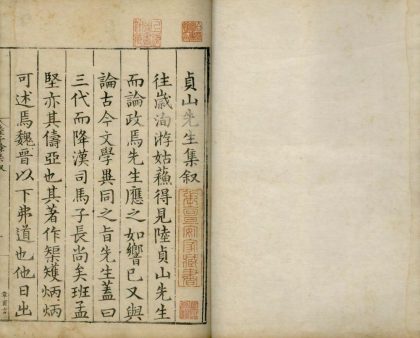 貞山先生集叙
往歲洵游姑蘇得見陸貞山先生
而論政焉先生應之如響已又與
論古今文學異同之旨先生蓋曰
三代而降漢司馬子長尚矣班孟
堅亦其儔亞也其著作榘矱炳炳
可述焉魏晉以下弗道也他日出